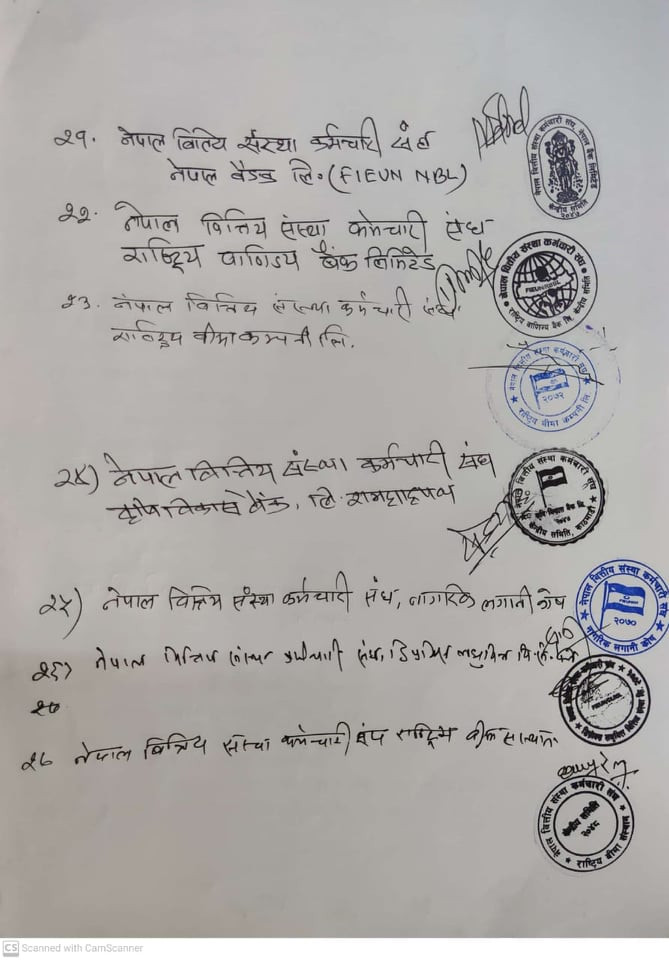 २१. नेपाल वित्तिय संस्था कर्मचारी संघ
नेपाल बैङ्क लि. (FIEUN NBL)
नेपाल वित्तीय संस्था कर्मचारी संघ, नेपाल बैंक लिमिटेड
केन्द्रीय समिति
२२. नेपाल वित्तिय संस्था कर्मचारी संघ
राष्ट्रिय वाणिज्य बैंक लिमिटेड
नेपाल वित्तीय संस्था कर्मचारी संघ
राष्ट्रिय वाणिज्य बैंक लि. केन्द्रीय समिति
२३. नेपाल वित्तिय संस्था कर्मचारी संघ
राष्ट्रिय वीमा कम्पनी लि.
नेपाल वित्तीय संस्था कर्मचारी संघ
२०७२
राष्ट्रिय बीमा कम्पनी लि
२४) नेपाल वित्तिय संस्था कर्मचारी संघ
कृषि विकास बैंक, लि.
नेपाल वित्तीय संस्था कर्मचारी संघ
केन्द्रीय समिति, काठमाडौं
२५) नेपाल वित्तिय संस्था कर्मचारी संघ, नागरिक लगानी कोष
नेपाल वित्तीय संस्था कर्मचारी संघ
२०७०
नागरिक लगानी कोष
२६) नेपाल वित्तिय संस्था कर्मचारी संघ,
२७ नेपाल वित्तिय संस्था कर्मचारी संघ राष्ट्रिय
नेपाल वित्तीय संस्था कर्मचारी संघ
केन्द्रीय समिति
२०४८
राष्ट्रिय बीमा संस्थान
CS Scanned with CamScanner